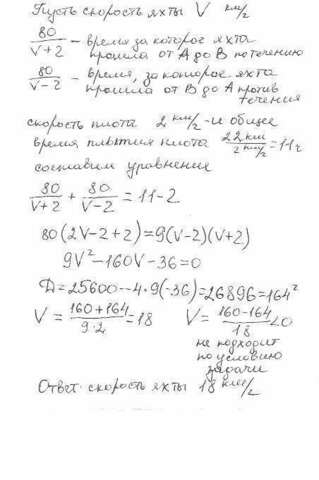 Пусть скорость яхты V км/ч
80/(V+2) - время за которое яхта прошла от А до В по течению
80/(V-2) - время, за которое яхта прошла от В до А против течения
скорость плота 2 км/ч и общее
время плытия плота 22 км / 2 км/ч = 11 ч
составим уравнения
80/(V+2) + 80/(V-2) = 11-2
80(2V-2+2)=9(V-2)(V+2)
9V²-160V-36=0
D=25600-4·9(-36)=26896=164²
V = (160+164)/(9·2) =18 V = (160-164)/18 <0
не подходит
по условию
задачи
Ответ: скорость яхты 18 км/ч